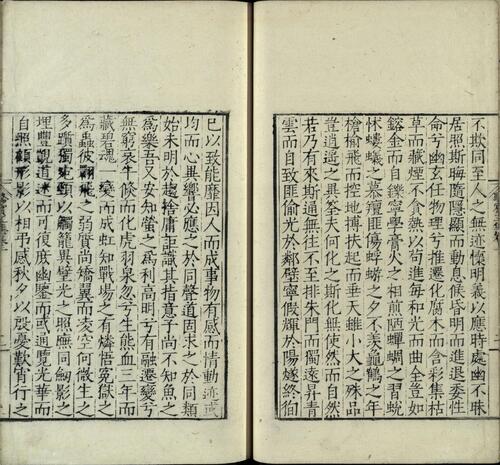 不欺同至人之無迹懷明義以應時處幽不昧
居照斯晦隨隱顯而動息候昏明而進退委性
命兮幽玄任物理兮推遷化腐木而含彩集枯
草而藏煙不貪熱以苟進每和光而曲全豈如
鎔金而自鑠寧學膏火之相煎陋蟬蜩之習蛻
怵螻蟻之慕羶匪傷蜉蝣之夕不羨龜鶴之年
槍榆飛而控地搏扶起而垂天雖小大之殊品
豈逍遙之異筌夫何化之斯化無使然而自然
若乃有來斯通無往不至排朱門而獨遠昇青
雲而自致匪偷光於鄰壁寧假輝於陽燧終徇
已以致能靡因人而成事物有感而情動迹或
均而心異響必應之於同聲道固求之於同類
始未明於趨捨庸詎識其指意子尚不知魚之
為樂吾又安知螢之為利高明兮有融遷變兮
無窮哀牛倏而化虎羽泉忽兮生熊血三年而
藏碧魂一變而成虹知戰場之有燐悟冤獄之
為蟲彼翾飛之弱質尚矯翼而凌空何微生之
多躓獨宛頸以觸籠異壁光之照廡同劒影之
埋豐覬道迷而可復庶幽鑒而或通覽光華而
自照顧形影以相弔感秋夕以殷憂歎宵行之